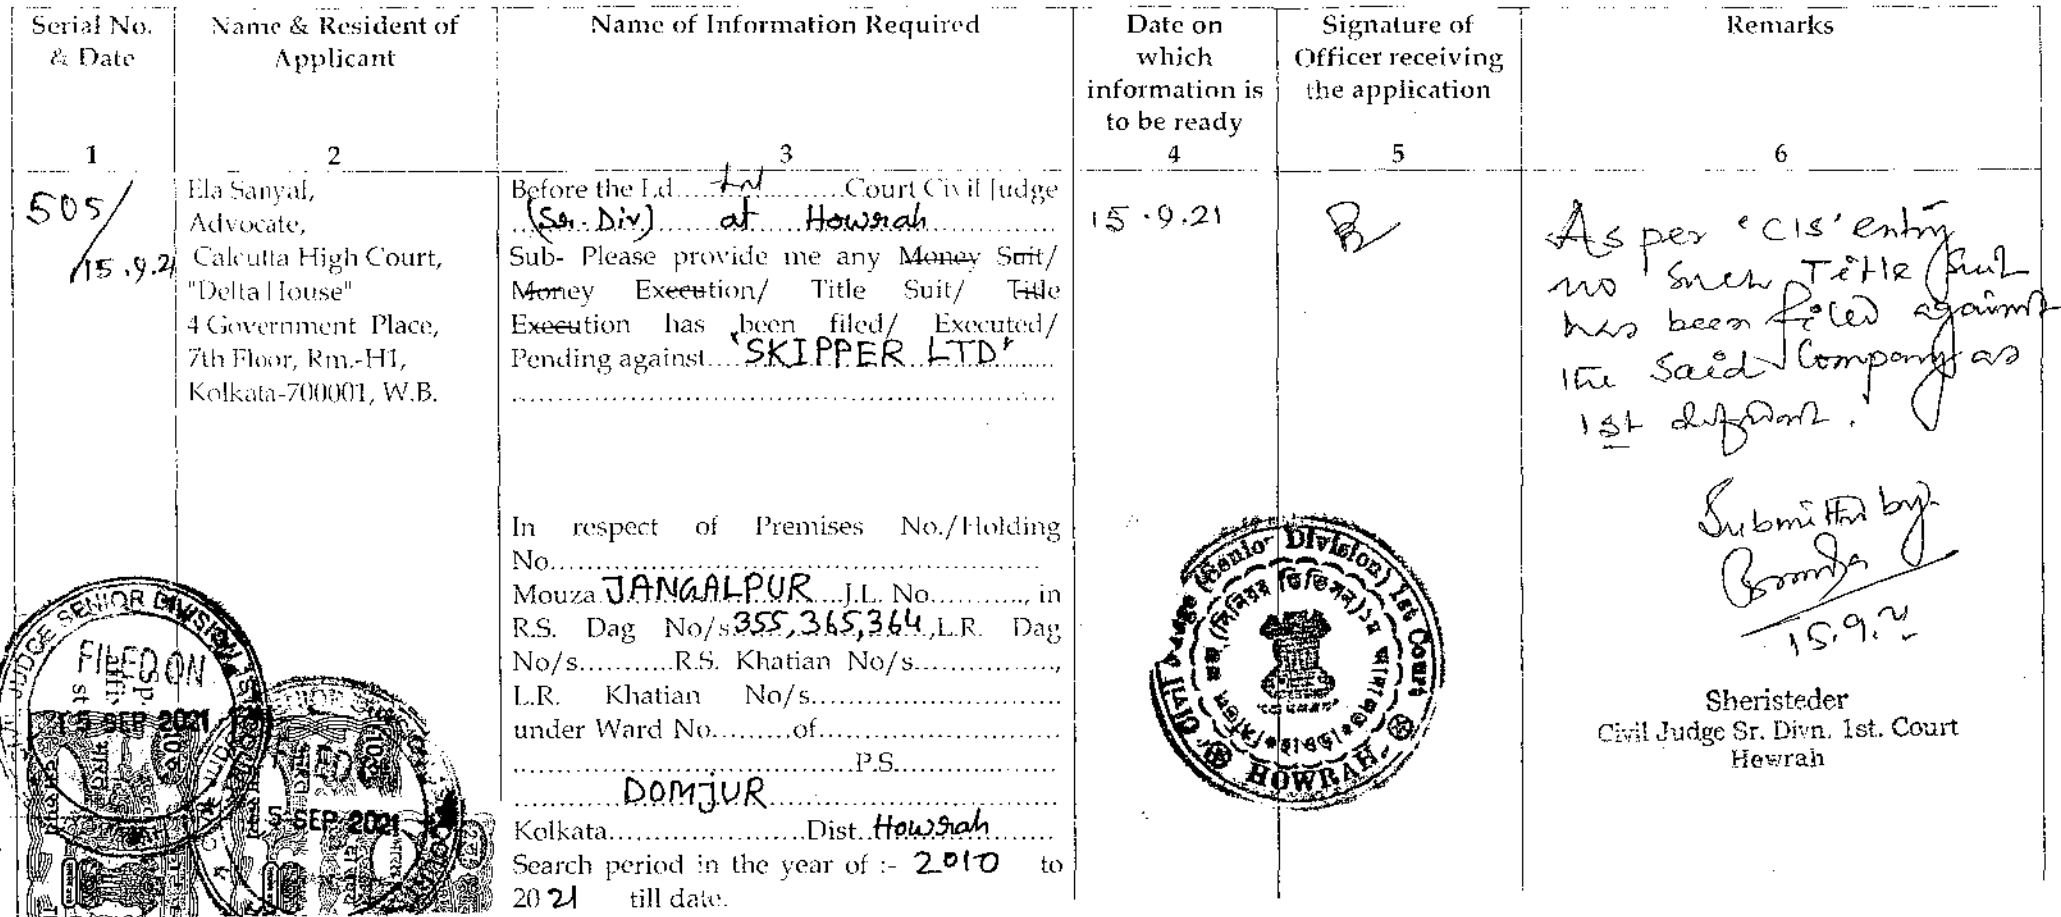 Serial No.
& Date
1
Name & Resident of
Applicant
2
Name of Information Required
3
Date on
which
information is
to be ready
4
Signature of
Officer receiving
the application
5
Remarks
6
505/
15.9.21
Ela Sanyal,
Advocate,
Calcutta High Court,
"Delta House"
4 Government Place,
7th Floor, Rm.-H1,
Kolkata-700001, W.B.
Before the Ld.....1st..........Court Civil Judge
(Sr. Div) at Howrah
Sub- Please provide me any Money Suit/
Money Execution/ Title Suit/ Title
Execution has been filed/ Executed/
Pending against....'SKIPPER LTD'
In respect of Premises No./Holding
No.
Mouza JANGALPUR J.L. No..........., in
R.S. Dag No/s 355,365,364, L.R. Dag
No/s...........R.S. Khatian No/s................,
L.R. Khatian No/s
under Ward No.........of
P.S.
DOMJUR
Kolkata......................Dist. Howrah
Search period in the year of :- 2010 to
2021 till date.
15.9.21
As per 'CIS' entry
no such Title Suit
has been filed against
the said Company as
1st defendant.
Submitted by
15.9.21
Sheristeder
Civil Judge Sr. Divn. 1st. Court
Howrah
Civil Judge (Senior Division) 1st Court
HOWRAH
JUDGE SENIOR DIVISION 1ST
FILED ON
15 SEP 2021
FILED
5 SEP 2021